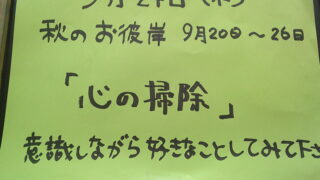 秋のお彼岸 9月20日〜26日
「心の掃除」
意識しながら好きなことしてみて下さ